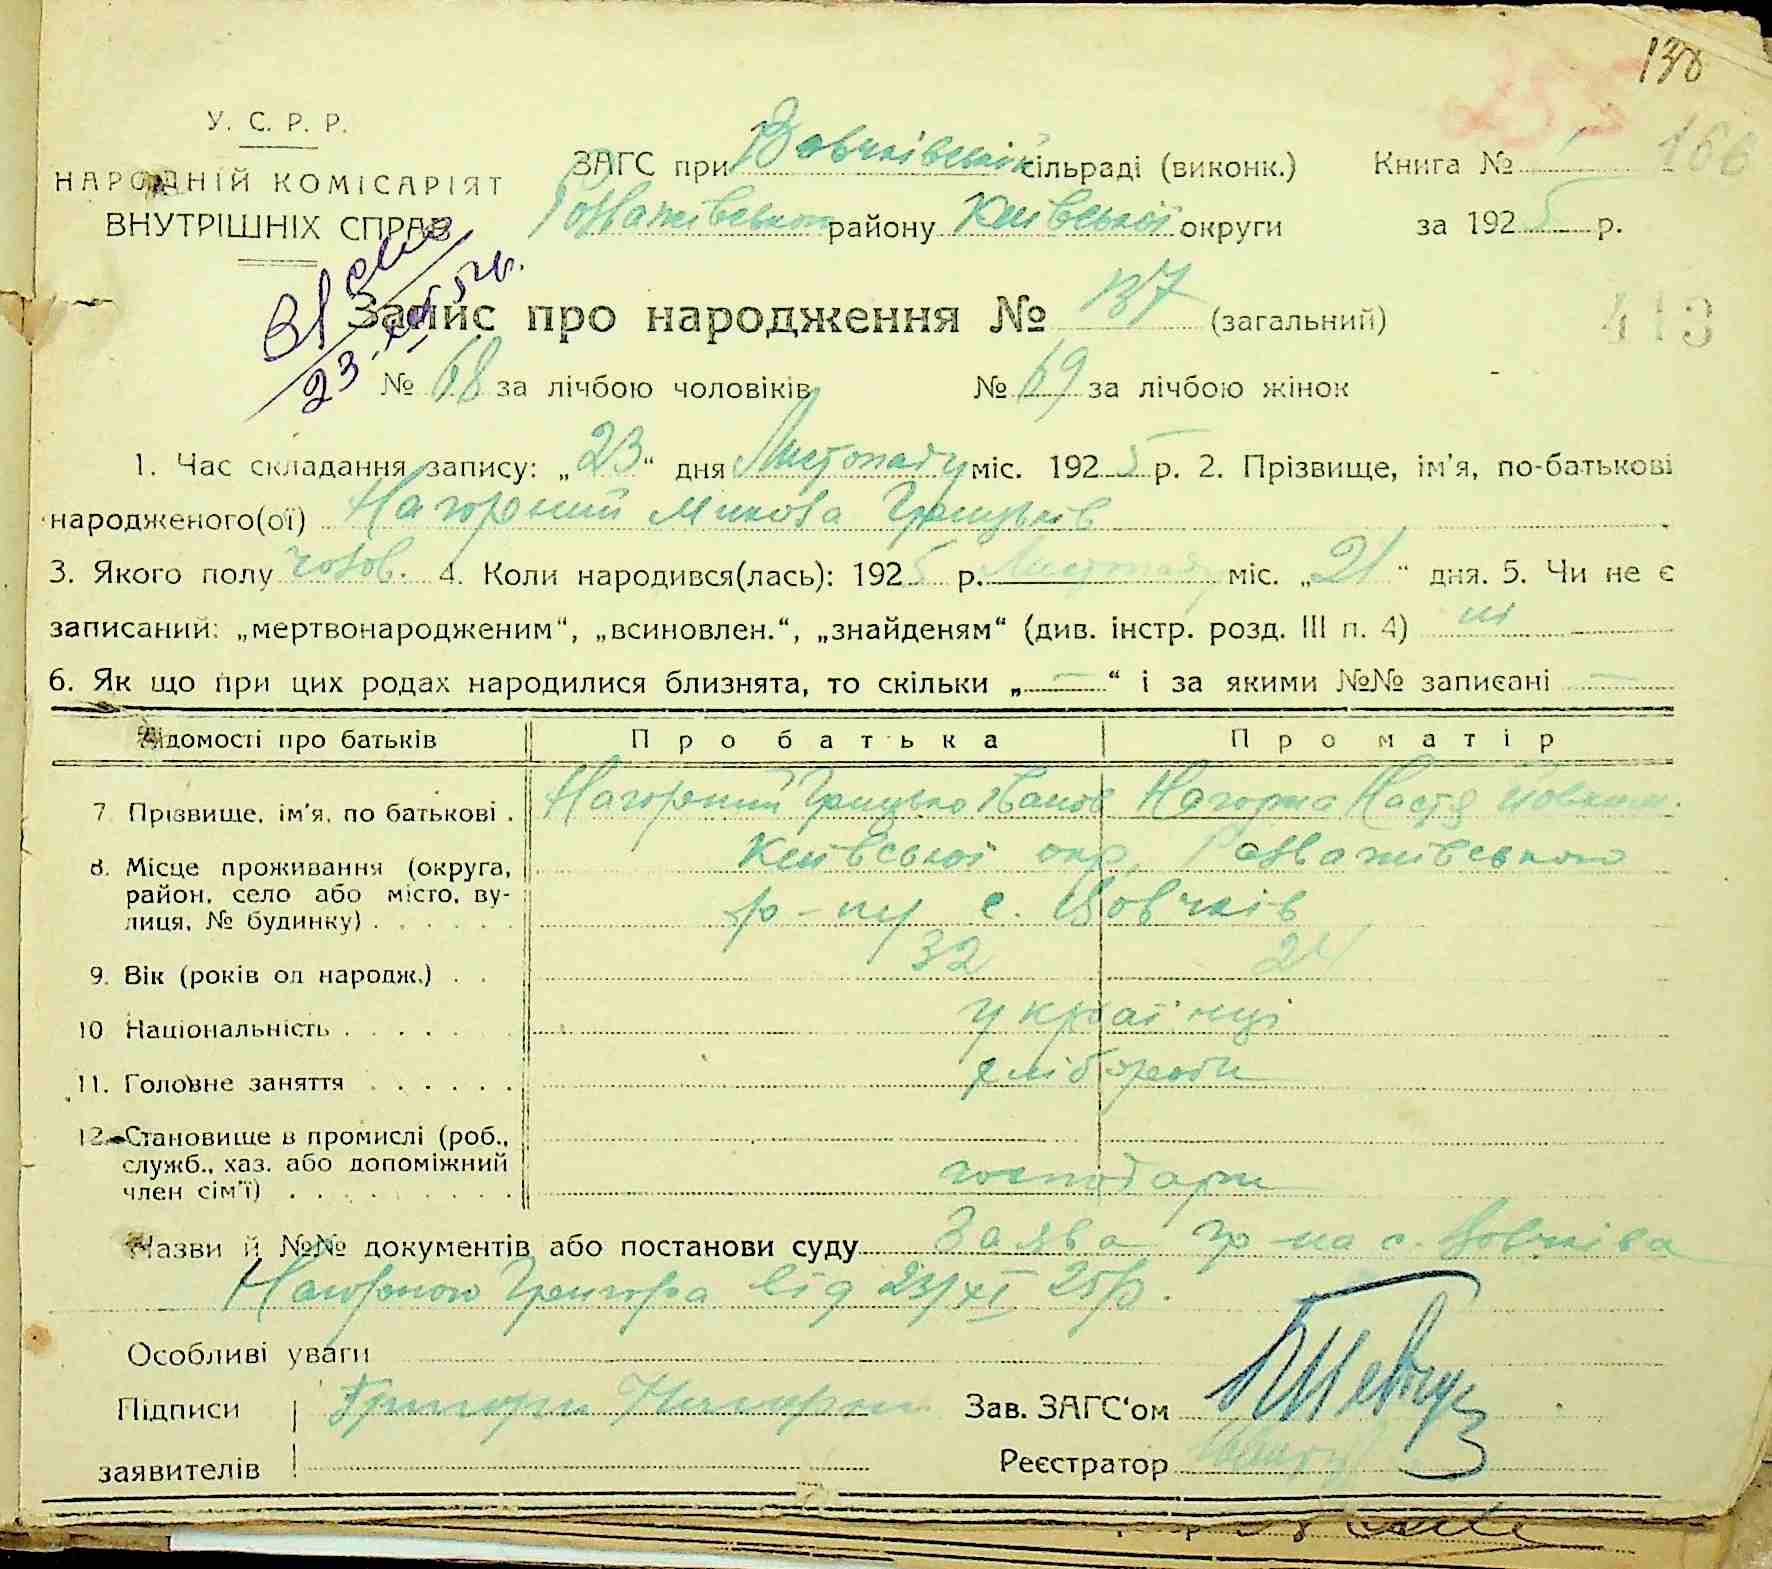 138
166
У. С. Р. Р.
НАРОДНІЙ КОМІСАРІЯТ
ВНУТРІШНІХ СПРАВ
ЗАГС при Вовчківській сільраді (виконк.) Книга №
Розважівського району Київської округи за 1925 р.
Запис про народження № 137 (загальний)
413
№ 68 за лічбою чоловіків № 69 за лічбою жінок
1. Час складання запису: „23“ дня Листопаду міс. 1925 р. 2. Прізвище, ім'я, по-батькові
народженого(ої) Нагорний Микола Грицьків
3. Якого полу чолов. 4. Коли народився(лась): 1925 р. Листопаду міс. „21“ дня. 5. Чи не є
записаний: „мертвонародженим“, „всиновлен.“, „знайденям“ (див. інстр. розд. III п. 4) ні
6. Як що при цих родах народилися близнята, то скільки „—“ і за якими №№ записані —
Відомості про батьків Про батька Про матір
7 Прізвище, ім'я, по батькові . Нагорний Грицько Іванов Нагорна Настя
8. Місце проживання (округа, Київської окр. Розважівського
район, село або місто, ву-
лиця, № будинку) . . . . . . р-ну с. Вовчків
9. Вік (років од народж.) . . 32 24
10 Національність . . . . . . . українці
11. Головне заняття . . . . . . хлібороби
12. Становище в промислі (роб.,
служб., хаз. або допоміжний
член сім'ї) . . . . . . . . . господарі
Назви й №№ документів або постанови суду Заява гр-на с. Вовчківа
Нагорного Григора від 23/XI 25р.
Особливі уваги
Підписи Григори Нагорни Зав. ЗАГС'ом
заявителів Реєстратор